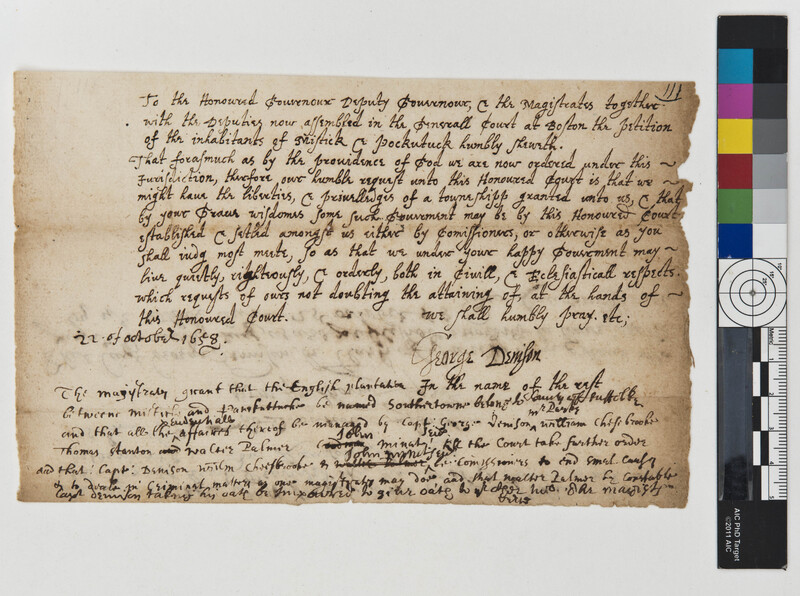 111
To the Honoured Gouernour Deputy Gouernour, & the Magistrates together
with the Deputies now assembled in the Generall Court at Boston the petition
of the inhabitants of Mistick & Pockutuck humbly sheweth.
That forasmuch as by the prouidence of God we are now ordered under this ~
Jurisdiction, therfore our humble request unto this Honoured Court is that we ~
might haue the liberties, & priuelledges of a towneshipp granted unto us, & that
by your Graue wisdomes some such Gouerment may be by this Honoured Court
established & setled amongst us either by Comissioners, or otherwise as you
shall iudg most meete, so as that we under your happy Gouerment may ~
liue quietly, righteously, & orderly, both in Ciuill, & Eclesiasticall respects.
which requests of ours not doubting the attaining of, at the hands of ~
this Honoured Court. we shall humbly pray. etc;
22 of october 1658.
George Denison
In the name of the rest
The magistrates grant that the English plantation
betweene mistick and Pawkatucke be named Southertowne belong to Suffolke
and that all the affaires thereof be managed by Capt: George Denison, william Cheesbrooke
Thomas Stanton and walter Palmer John Minat till the Court take further order
and that: Capt: Denison willm Cheesbrooke & John minat be Comissioners to end smal causes
& to deale in Criminal matters as one magistrate may doe and that walter Palmer be Constable
Capt denison taking his oath be impowred to giue oath to the other